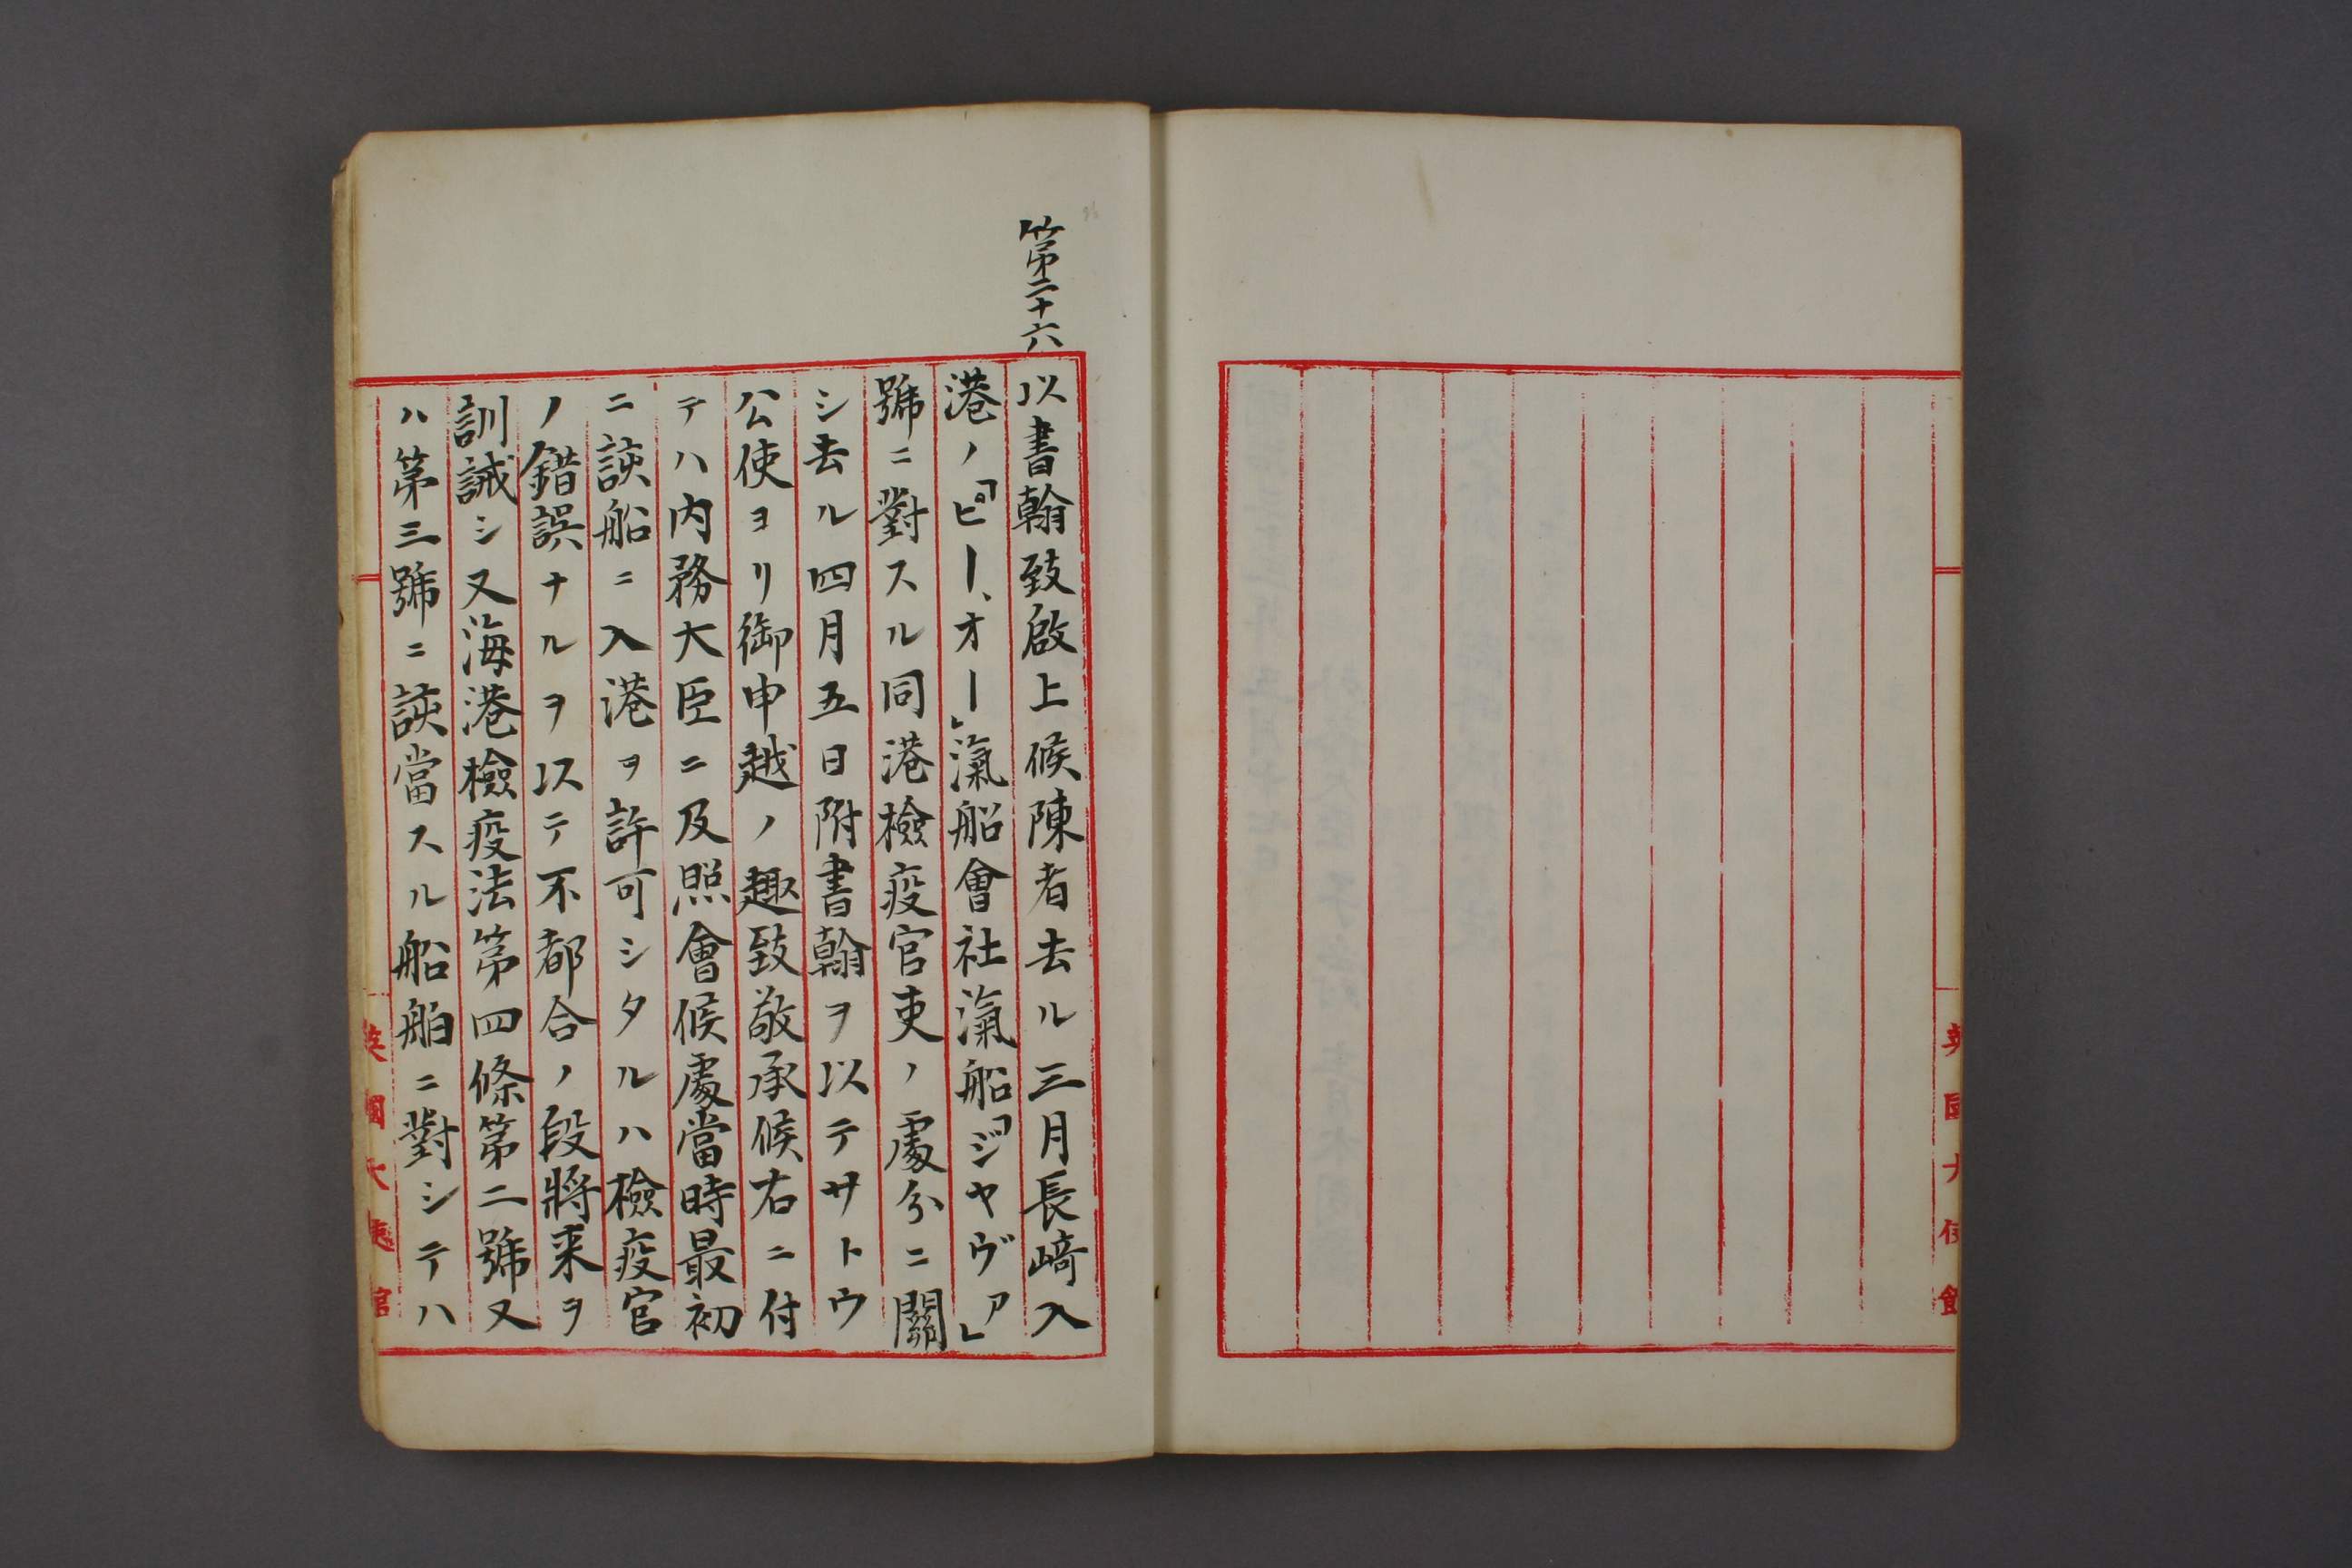 英國大使館
第二十六
以書翰致啟上候陳者去ル三月長﨑入
港ノ「ピー、オー」滊船會社滊船「ジヤヴア」
號ニ對スル同港檢疫官吏ノ處分ニ關
シ去ル四月五日附書翰ヲ以テサトウ
公使ヨリ御申越ノ趣致敬承候右ニ付
テハ内務大臣ニ及照會候處當時最初
ニ該船ニ入港ヲ許可シタルハ檢疫官
ノ錯誤ナルヲ以テ不都合ノ段將来ヲ
訓誡シ又海港檢疫法第四條第二號又
ハ第三號ニ該當スル船舶ニ對シテハ
英國大使館